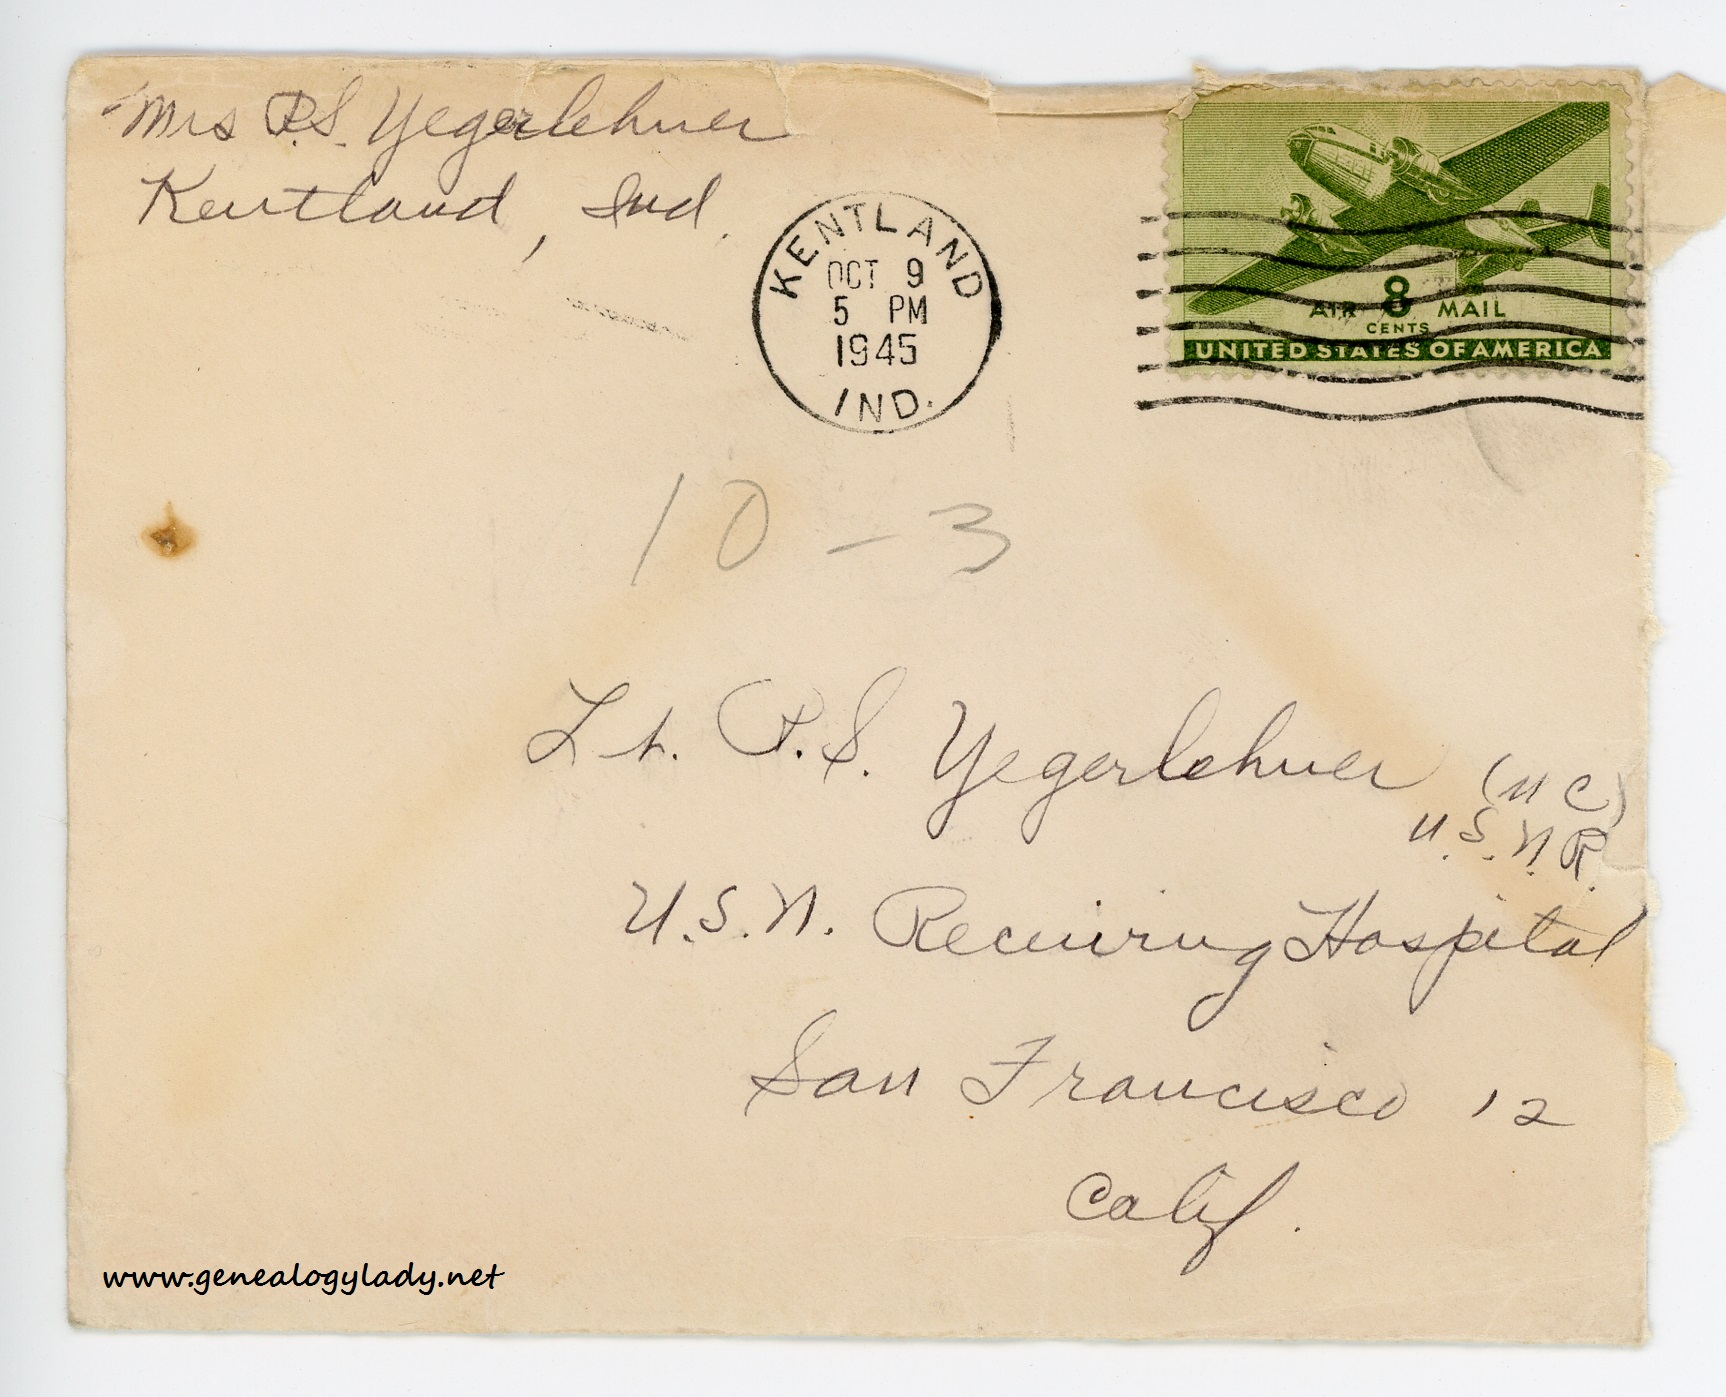 Mrs P.S. Yegerlehner
Kentland, Ind.
KENTLAND
OCT 9
5 PM
1945
IND.
AIR 8 MAIL
CENTS
UNITED STATES OF AMERICA
10-3
Lt. P.S. Yegerlehner (MC)
U.S.N.R.
U.S.N. Receiving Hospital
San Francisco 12
Calif.
www.genealogylady.net